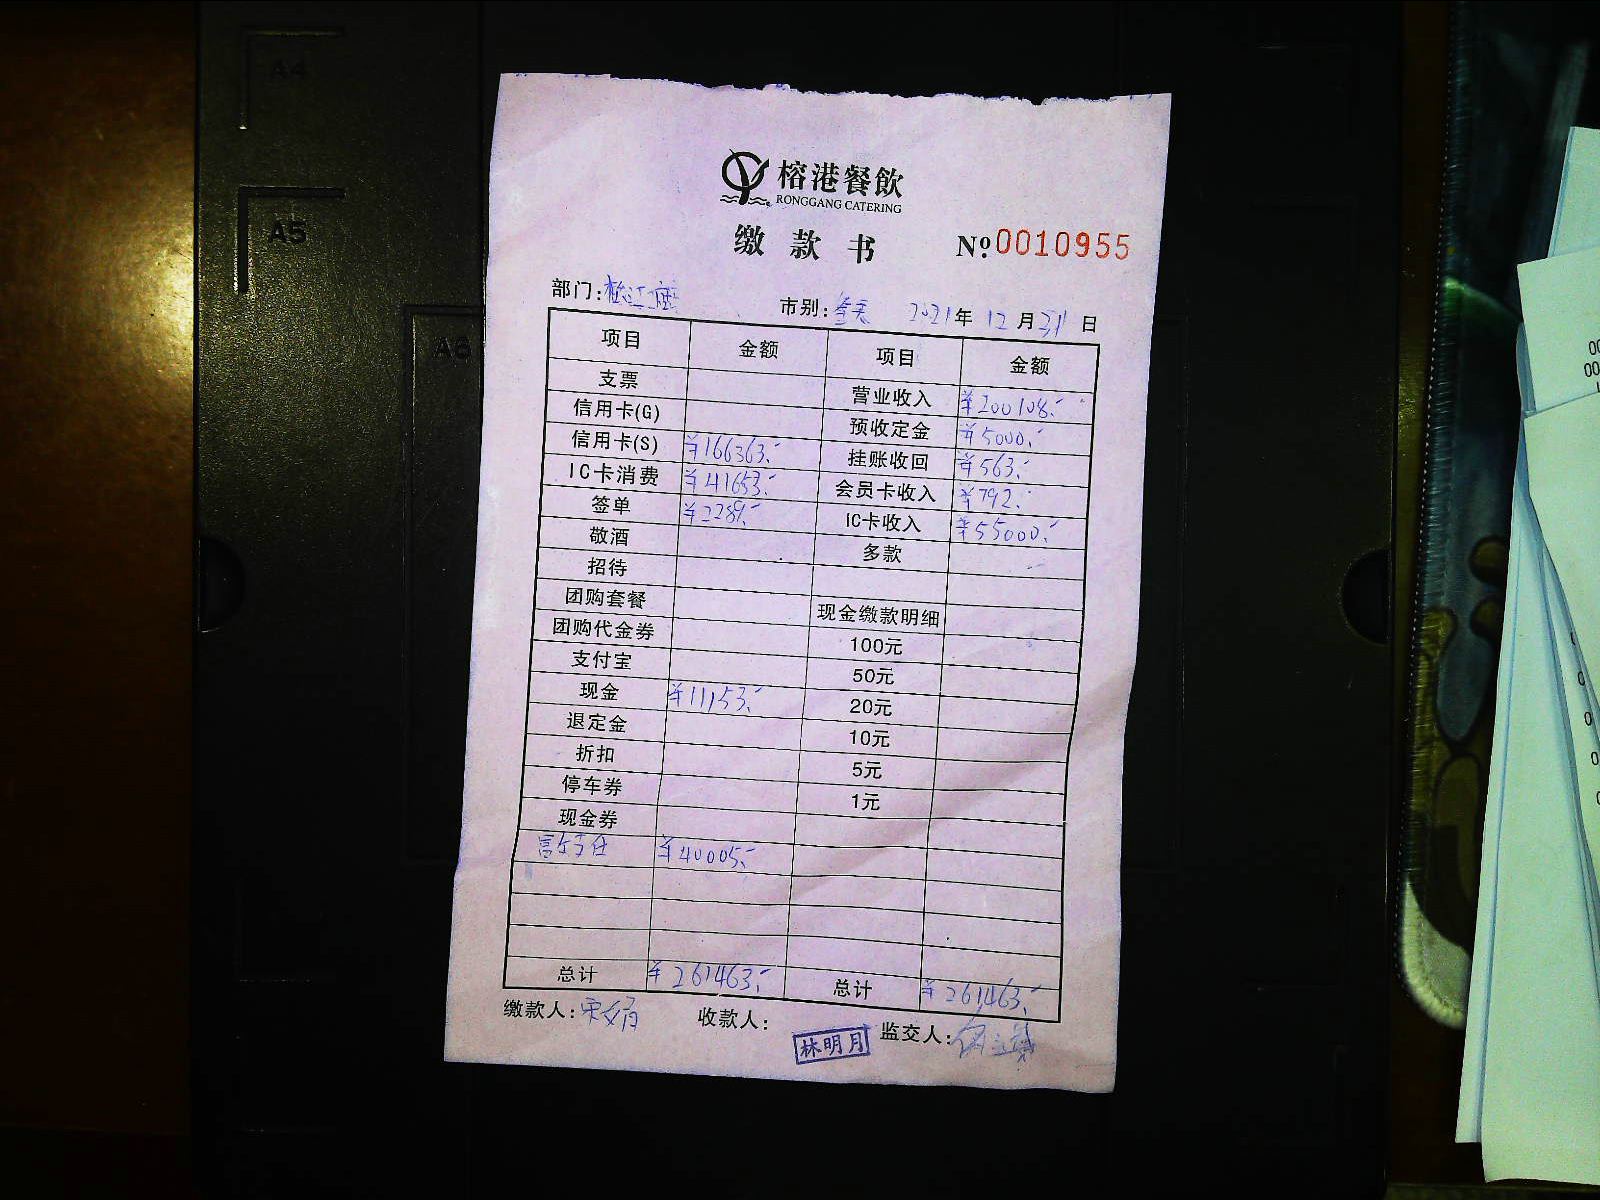 A4
A5
A6
榕港餐飲
RONGGANG CATERING
缴款书 №0010955
部门: 市别:全天 2021年12月31日
项目 金额 项目 金额
支票 营业收入 ¥200108.-
信用卡(G) 预收定金 ¥5000.-
信用卡(S) ¥166363.- 挂账收回 ¥563.-
IC卡消费 ¥41653.- 会员卡收入 ¥792.-
签单 ¥2289.- IC卡收入 ¥55000.-
敬酒 多款
招待
团购套餐 现金缴款明细
团购代金券 100元
支付宝 50元
现金 ¥11153.- 20元
退定金 10元
折扣 5元
停车券 1元
现金券
¥40005.-
总计 ¥261463.- 总计 ¥261463.-
缴款人: 收款人: 林明月 监交人: